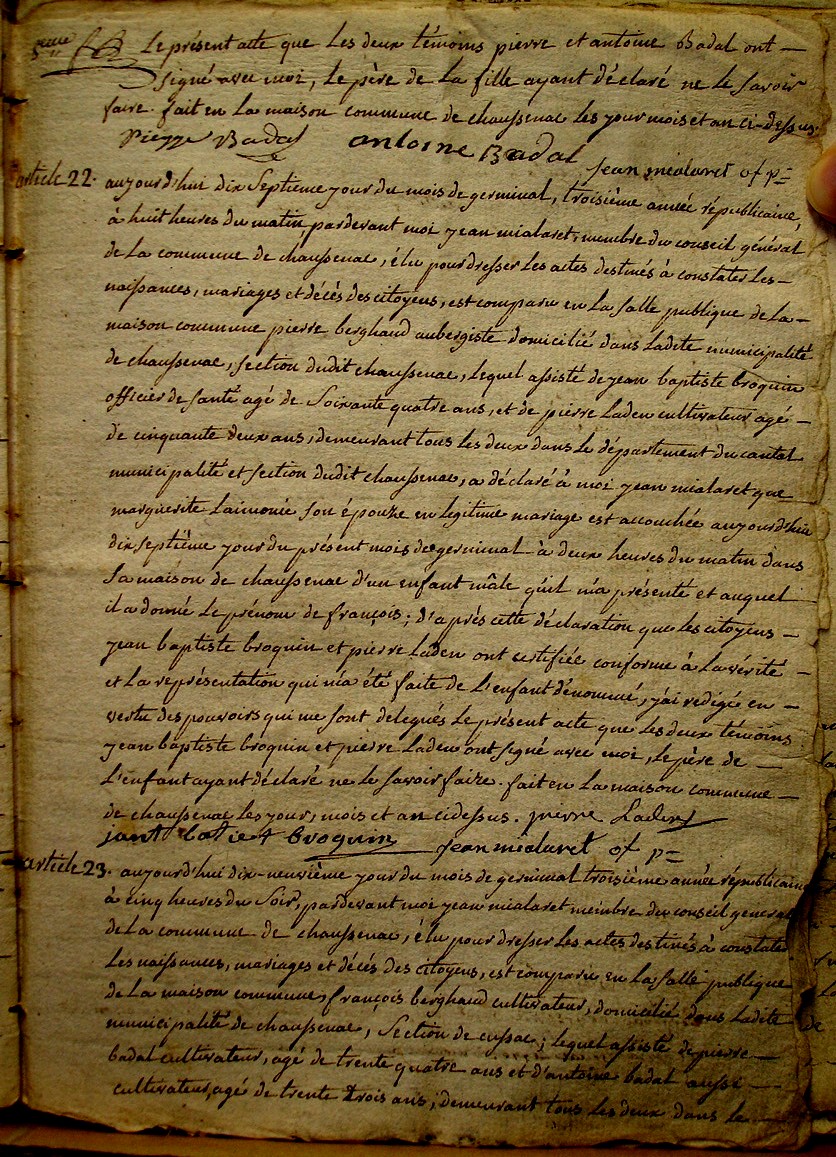 Le présent acte que les deux témoins pierre et antoine Badal ont —
signé avec moi, le père de la fille ayant déclaré ne le savoir
faire. fait en la maison commune de chaussenac les jour mois et an ci-dessus.
Pierre Badal antoine Badal
jean mialaret of p=
article 22. aujourd'hui dix Septieme jour du mois de germinal, troisième année républicaine,
à huit heures du matin, pardevant moi jean mialaret, membre du conseil général
de la commune de chaussenac, élu pour dresser les actes destinés à constater les —
naissances, mariages et décès des citoyens, est comparu en la salle publique de la —
maison commune pierre berghaud aubergiste domicilié dans ladite municipalité
de chaussenac, section dudit chaussenac, lequel assisté de jean baptiste broquin
officier de santé agé de soixante quatre ans, et de pierre Laden cultivateur agé —
de cinquante deux ans, demeurant tous les deux dans le département du cantal
municipalité et section dudit chaussenac, a déclaré à moi jean mialaret que
marguerite Laimonie son épouze en legitime mariage est accouchée aujourd'hui
dix septième jour du présent mois de germinal à deux heures du matin dans
sa maison de chaussenac d'un enfant mâle qu'il m'a présenté et auquel
il a donné le prénom de françois; d'après cette déclaration que les citoyens —
jean baptiste broquin et pierre Laden ont certifiée conforme à la vérité —
et la représentation qui m'a été faite de l'enfant dénommé, j'ai redigé en —
vertu des pouvoirs qui me sont delegués le présent acte que les deux témoins
jean baptiste broquin et pierre Laden ont signé avec moi, le père de —
l'enfant ayant déclaré ne le savoir faire. fait en la maison commune —
de chaussenac les jour, mois et an ci dessus. pierre Laden
broquin jean mialaret of p=
article 23. aujourd'hui dix-neuvième jour du mois de germinal troisième année républicaine
à cinq heures du soir, pardevant moi jean mialaret membre du conseil general
de la commune de chaussenac, élu pour dresser les actes destinés à constater
les naissances, mariages et décés des citoyens, est comparu en la salle publique
de la maison commune, françois berghaud cultivateur, domicilié dans ladite
municipalité de chaussenac, section de cussac, lequel assisté de pierre —
badal cultivateur, agé de trente quatre ans et d'antoine badal aussi —
cultivateur, agé de trente trois ans; demeurant tous les deux dans le —